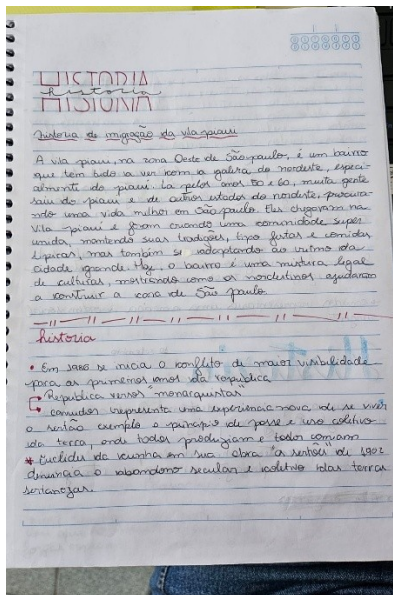 HISTORIA
historia
historia de imigração da vila piaui
A vila piaui, na zona Oeste de São paulo, é um bairro
que tem tudo a ver com a galera do nordeste, especi-
almente do piaui. La pelos anos 50 e 60, muita gente
saiu do piaui e de outros estados do nordeste, procura-
ndo uma vida melhor em São paulo. Eles chegaram na
Vila piaui e foram criando uma comunidade super
unida, mantendo suas tradições, tipo festas e comidas
tipicas, mas também se adaptando ao ritmo da
cidade grande. Hoje, o bairro é uma mistura legal
de culturas, mostrando como os nordestinos ajudaram
a construir a cara de São Paulo
historia
• Em 1986 se inicia o conflito de maior visibilidade
para os primeiros anos da republica
Republica versos "monarquistas"
canudos representa uma experiencia nova de se viver
o sertão exemplo o principio de posse e uso coletivo
da terra, onde todos produziam e todos comiam
* Euclides da cunha em sua obra "os sertões" de 1902
denuncia o abandono secular e coletivo das terras
sertanejas.